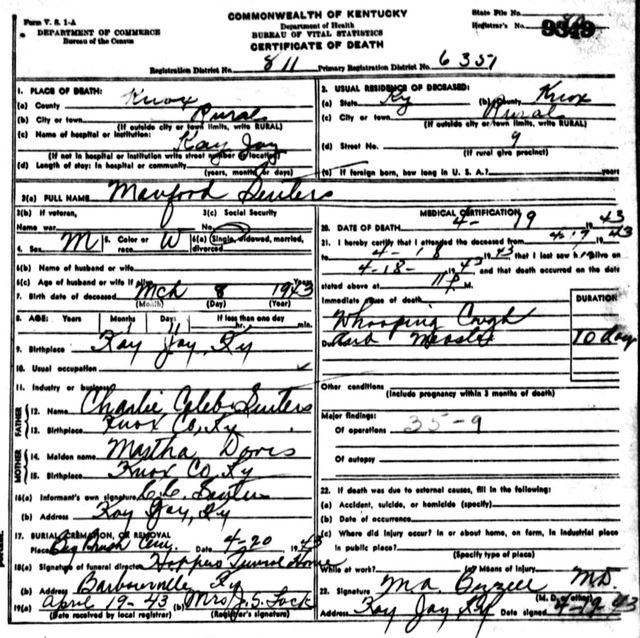 Form V. S. 1-A
DEPARTMENT OF COMMERCE
Bureau of the Census
COMMONWEALTH OF KENTUCKY
Department of Health
BUREAU OF VITAL STATISTICS
CERTIFICATE OF DEATH
State File No.
Registrar's No. 9349
Registration District No. 811 Primary Registration District No. 6357
1. PLACE OF DEATH:
(a) County Knox
(b) City or town Rural
(If outside city or town limits, write RURAL)
(c) Name of hospital or institution:
Kay Jay
(If not in hospital or institution write street number or location)
(d) Length of stay: In hospital or community
(years, months or days)
2. USUAL RESIDENCE OF DECEASED:
(a) State Ky (b) County Knox
(c) City or town Rural
(If outside city or town limits, write RURAL)
(d) Street No. 9
(If rural give precinct)
(e) If foreign born, how long in U. S. A.? years
3(a) FULL NAME Manford
3(b) If veteran,
Name war
3(c) Social Security
No.
4. Sex M 5. Color or race W 6(a) Single, widowed, married, divorced
6(b) Name of husband or wife
6(c) Age of husband or wife if alive
7. Birth date of deceased Mch 8 1943
(Month) (Day) (Year)
8. AGE: Years Months Days If less than one day
1 11 hr. min.
9. Birthplace Kay Jay, Ky
10. Usual occupation
11. Industry or business
FATHER
12. Name Charlie
13. Birthplace Knox Co, Ky
MOTHER
14. Maiden name Martha
15. Birthplace Knox Co, Ky
16(a) Informant's own signature
(b) Address Kay Jay, Ky
17. BURIAL, CREMATION, OR REMOVAL
Place Brush Cem. Date 4-20 1943
18(a) Signature of funeral director Funeral Home
(b) Address Barbourville Ky
19(a) April 19-43 (b) Mrs J. S. Lock
(Date received by local registrar) (Registrar's signature)
MEDICAL CERTIFICATION
20. DATE OF DEATH 4- 19 1943
21. I hereby certify that I attended the deceased from 4-17 1943
to 4-18 1943 that I last saw him alive on
4-18- 1943, and that death occurred on the date
stated above at 11 P M.
Immediate cause of death
Whooping Cough
Due
and Measles
DURATION
10 day
Other conditions
(Include pregnancy within 3 months of death)
Major findings:
Of operations 35-9
Of autopsy
22. If death was due to external causes, fill in the following:
(a) Accident, suicide, or homicide (specify)
(b) Date of occurrence
(c) Where did injury occur? In or about home, on farm, in industrial place
in public place?
(Specify type of place)
While at work? Means of injury
23. Signature M. D.
(M. D. or other)
Address Kay Jay Ky Date signed 4-19-43